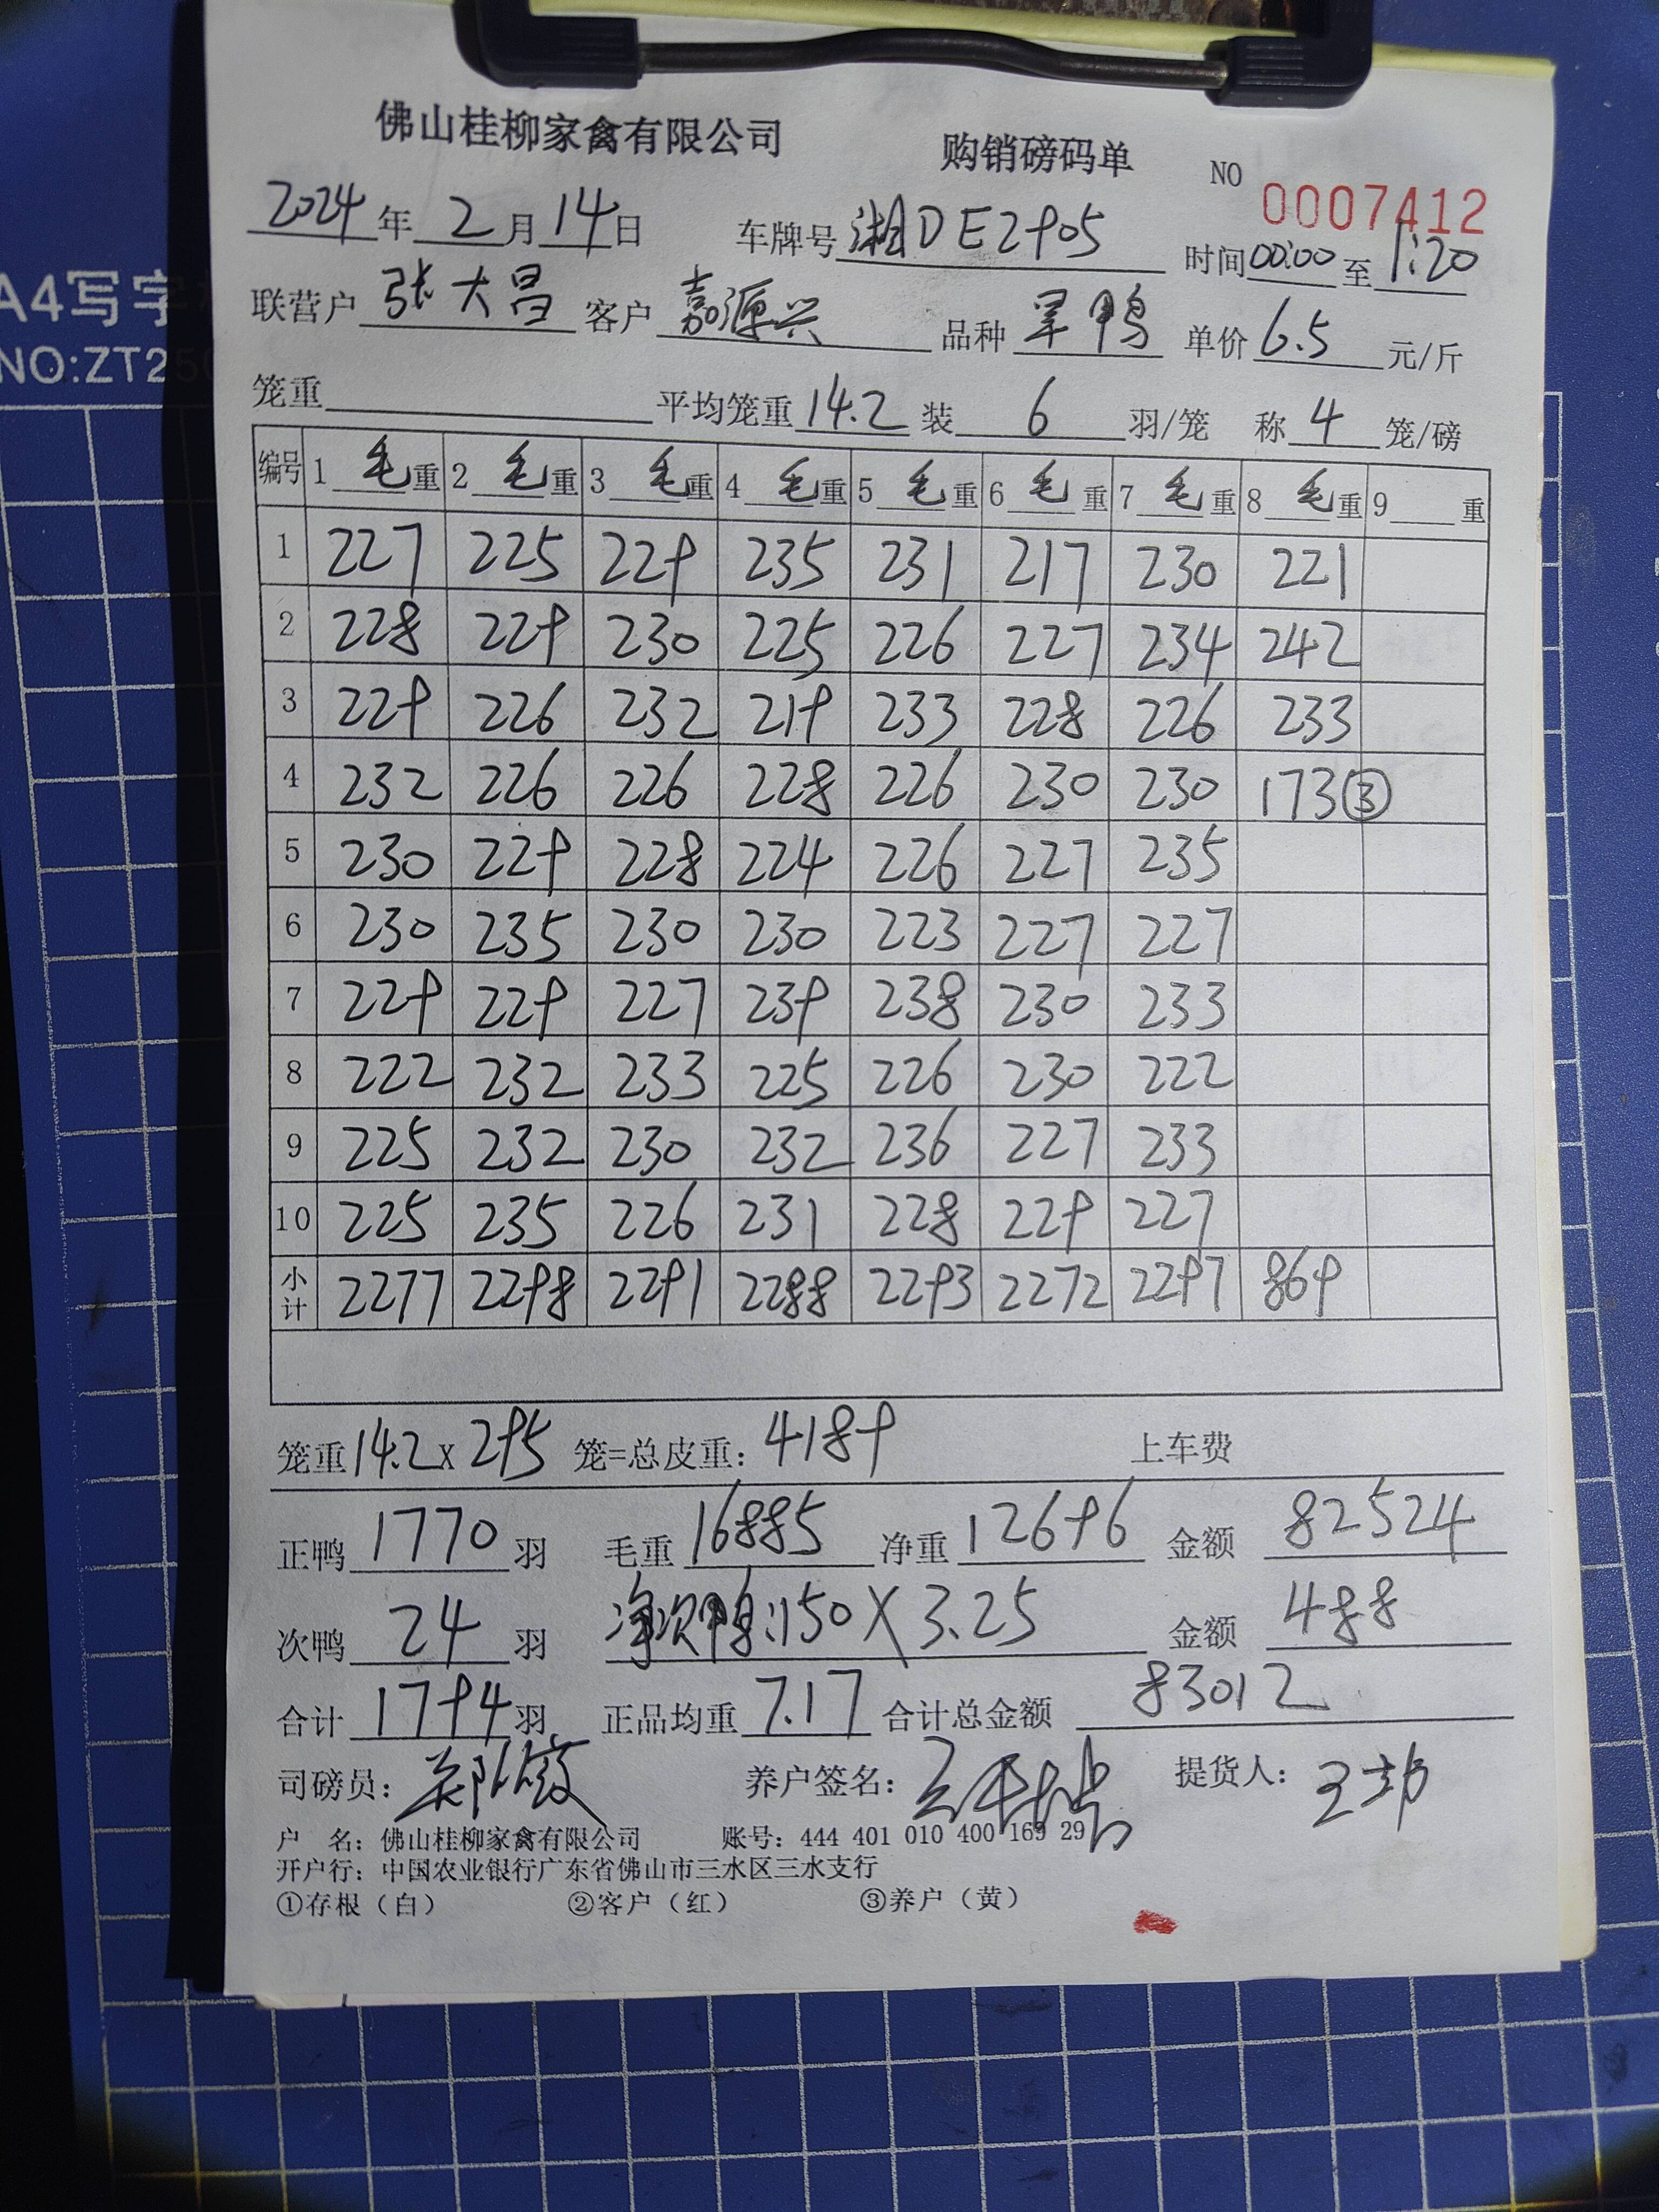 佛山桂柳家禽有限公司 购销磅码单 NO 0007412
2024年2月14日 车牌号 湘DE2905 时间00:00至1:20
A4写字
联营户 张大昌 客户 嘉源兴 品种 旱鸭 单价 6.5 元/斤
NO:ZT250
笼重 平均笼重14.2 装 6 羽/笼 称 4 笼/磅
编号 1 毛重 2 毛重 3 毛重 4 毛重 5 毛重 6 毛重 7 毛重 8 毛重 9 重
1 227 225 229 235 231 217 230 221
2 228 229 230 225 226 227 234 242
3 229 226 232 219 233 228 226 233
4 232 226 226 228 226 230 230 173③
5 230 229 228 224 226 227 235
6 230 235 230 230 223 227 227
7 229 229 227 239 238 230 233
8 222 232 233 225 226 230 222
9 225 232 230 232 236 227 233
10 225 235 226 231 228 229 227
小计 2277 2298 2291 2288 2293 2272 2297 869
笼重14.2x295 笼=总皮重: 4189 上车费
正鸭 1770 羽 毛重 16885 净重 12696 金额 82524
次鸭 24 羽 净次鸭:150X3.25 金额 488
合计 1794 羽 正品均重 7.17 合计总金额 83012
司磅员: 养户签名: 提货人:
户 名: 佛山桂柳家禽有限公司 账号: 444 401 010 400 169 29
开户行: 中国农业银行广东省佛山市三水区三水支行
①存根(白) ②客户(红) ③养户(黄)